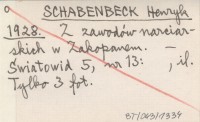 SCHABENBECK Henryk
1928. Z zawodów narciar-
skich w Zakopanem. -
Światowid 5, nr 13: , il.
Tylko 3 fot.